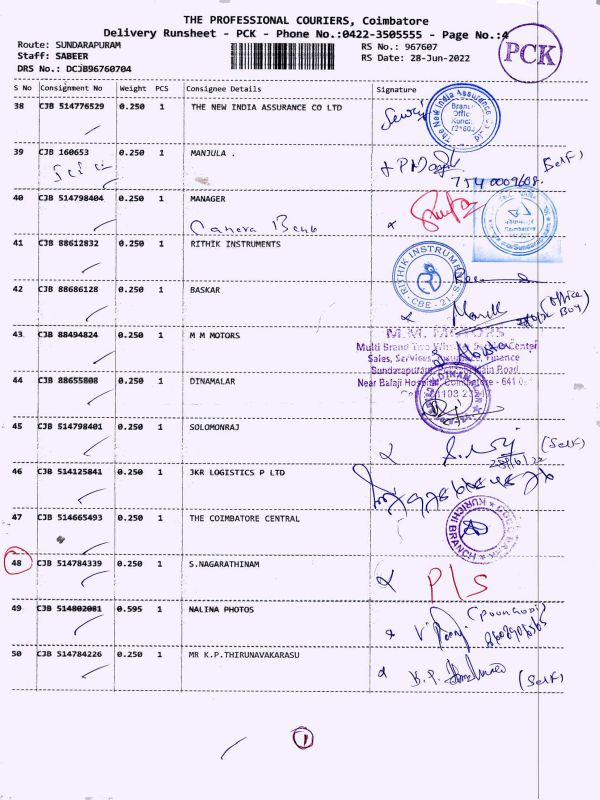 THE PROFESSIONAL COURIERS, Coimbatore
Delivery Runsheet - PCK - Phone No.:0422-3505555 - Page No.:4
Route: SUNDARAPURAM
Staff: SABEER
DRS No.: DCJB96760704
RS No.: 967607
RS Date: 28-Jun-2022
PCK
S No Consignment No Weight PCS Consignee Details Signature
38 CJB 514776529 0.250 1 THE NEW INDIA ASSURANCE CO LTD
The New India Assurance
39 CJB 160653 0.250 1 MANJULA .
(Self)
7540009608.
40 CJB 514798404 0.250 1 MANAGER
Canera Bank
41 CJB 88612832 0.250 1 RITHIK INSTRUMENTS
RITHIK INSTRUMENTS
CBE - 21.
42 CJB 88686128 0.250 1 BASKAR
(Office Boy)
43 CJB 88494824 0.250 1 M M MOTORS
M.M. MOTORS
Multi Brand Two Center
Sales, Services, Finance
Sundarapuram Road
Near Balaji Hospital, Coimbatore - 641
44 CJB 88655808 0.250 1 DINAMALAR
45 CJB 514798401 0.250 1 SOLOMONRAJ
(Self)
28/6/22
46 CJB 514125841 0.250 1 JKR LOGISTICS P LTD
47 CJB 514665493 0.250 1 THE COIMBATORE CENTRAL
KURICHI BRANCH
48 CJB 514784339 0.250 1 S.NAGARATHINAM
P/S
49 CJB 514802081 0.595 1 NALINA PHOTOS
50 CJB 514784226 0.250 1 MR K.P.THIRUNAVAKARASU
K.P.
(Self)
1